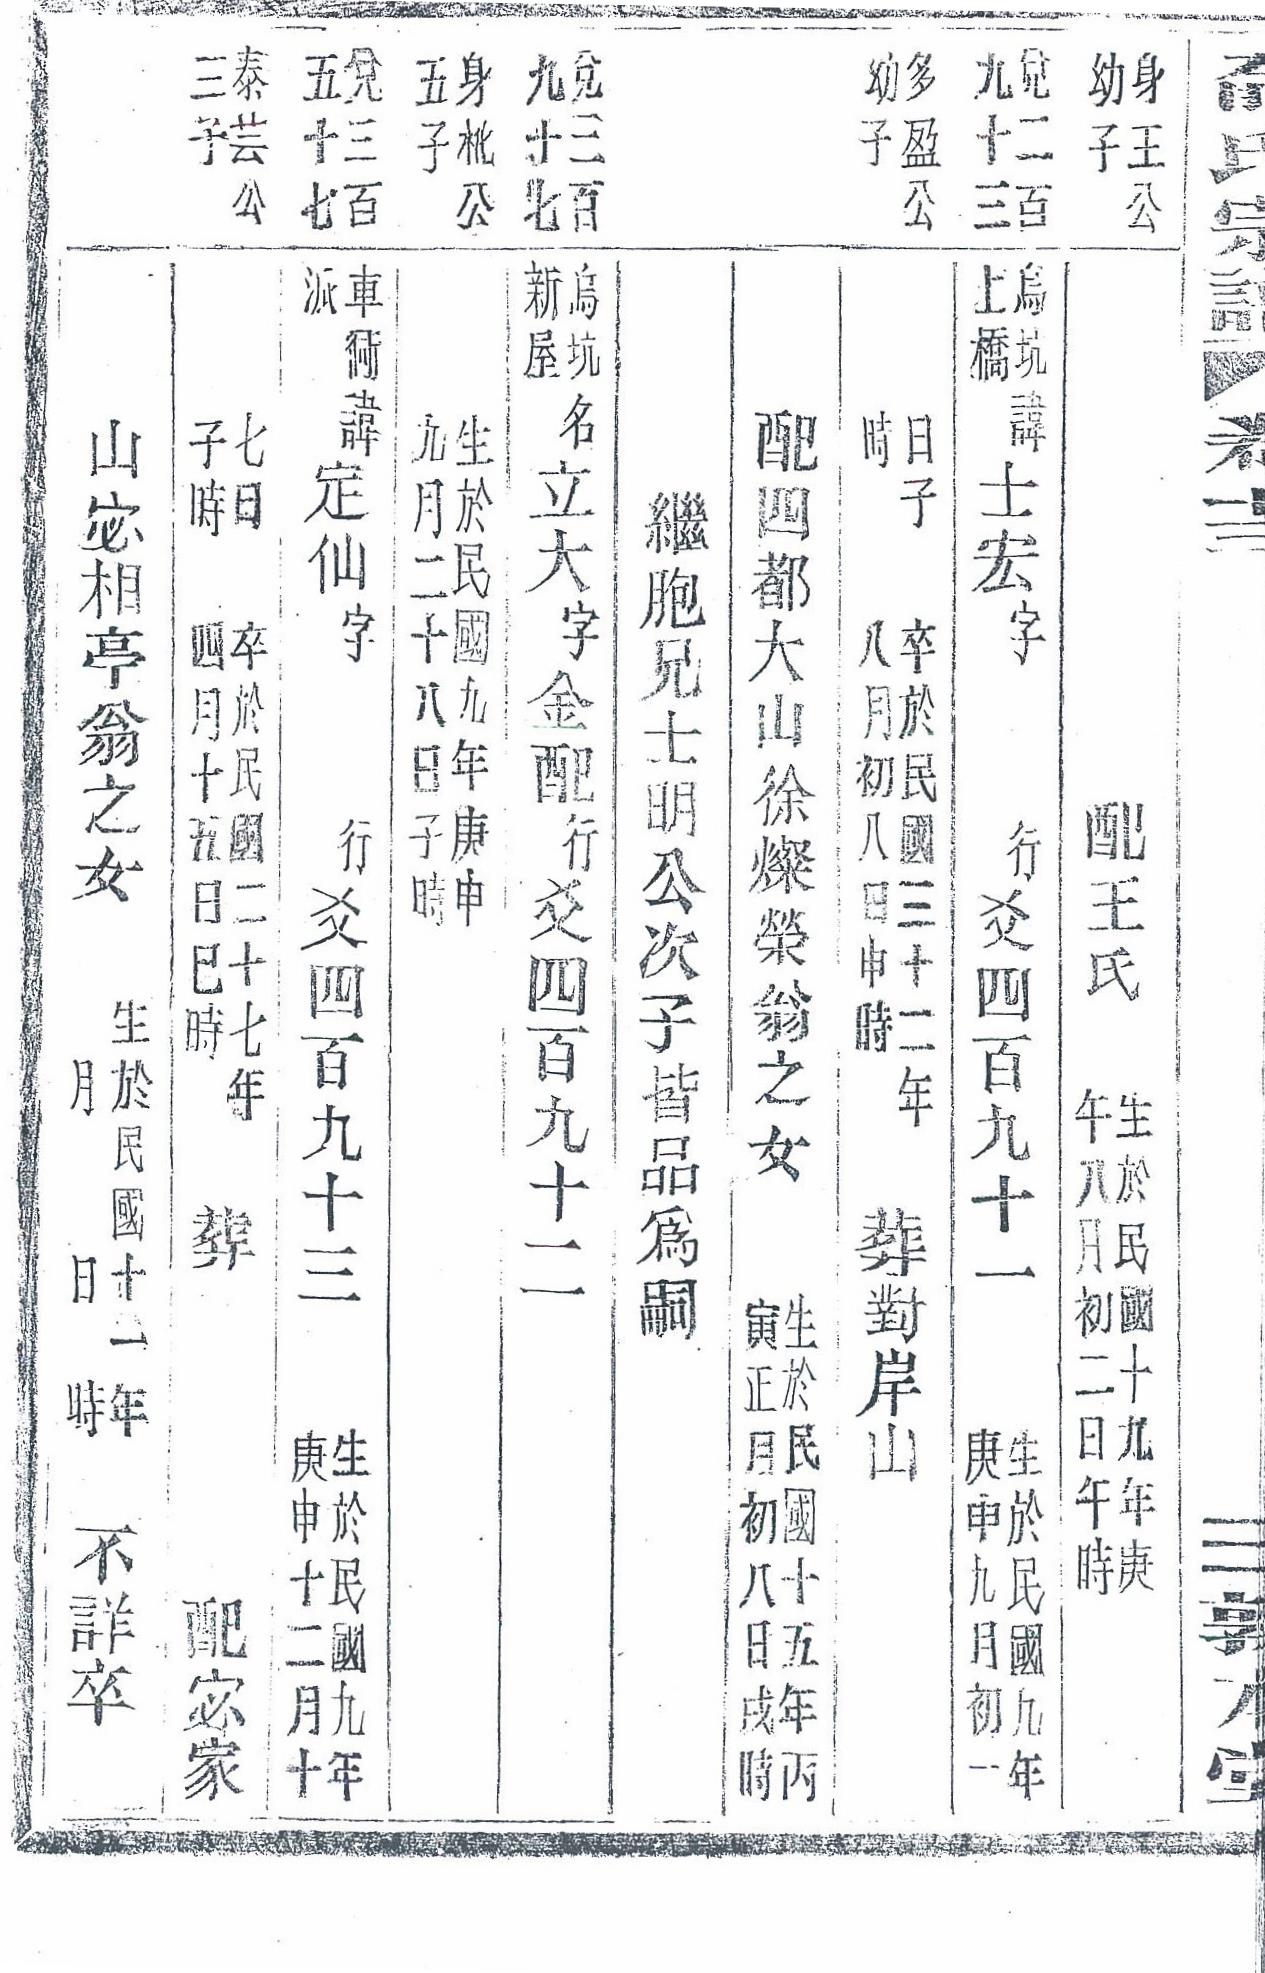 氏宗譜
身王公
幼子
配王氏
生於民國十九年庚
午八月初二日午時
兌二百
九十三
烏坑
上橋
諱士宏字
行爻四百九十一
生於民國九年
庚申九月初一
多盈公
幼子
日子
時
卒於民國三十二年
八月初八日申時
葬對岸山
配四都大山徐燦榮翁之女
生於民國十五年丙
寅正月初八日戌時
繼胞兄士明公次子皆品爲嗣
兌三百
九十七
烏坑
新屋
名立大字金配
行爻四百九十二
身桃公
五子
生於民國九年庚申
九月二十八日子時
兌三百
五十七
車衕
派
諱定仙字
行爻四百九十三
生於民國九年
庚申十二月十
泰芸公
三子
七日
子時
卒於民國二十七年
四月十五日巳時
葬
配宓家
山宓相亭翁之女
生於民國十一年
月 日 時
不詳卒